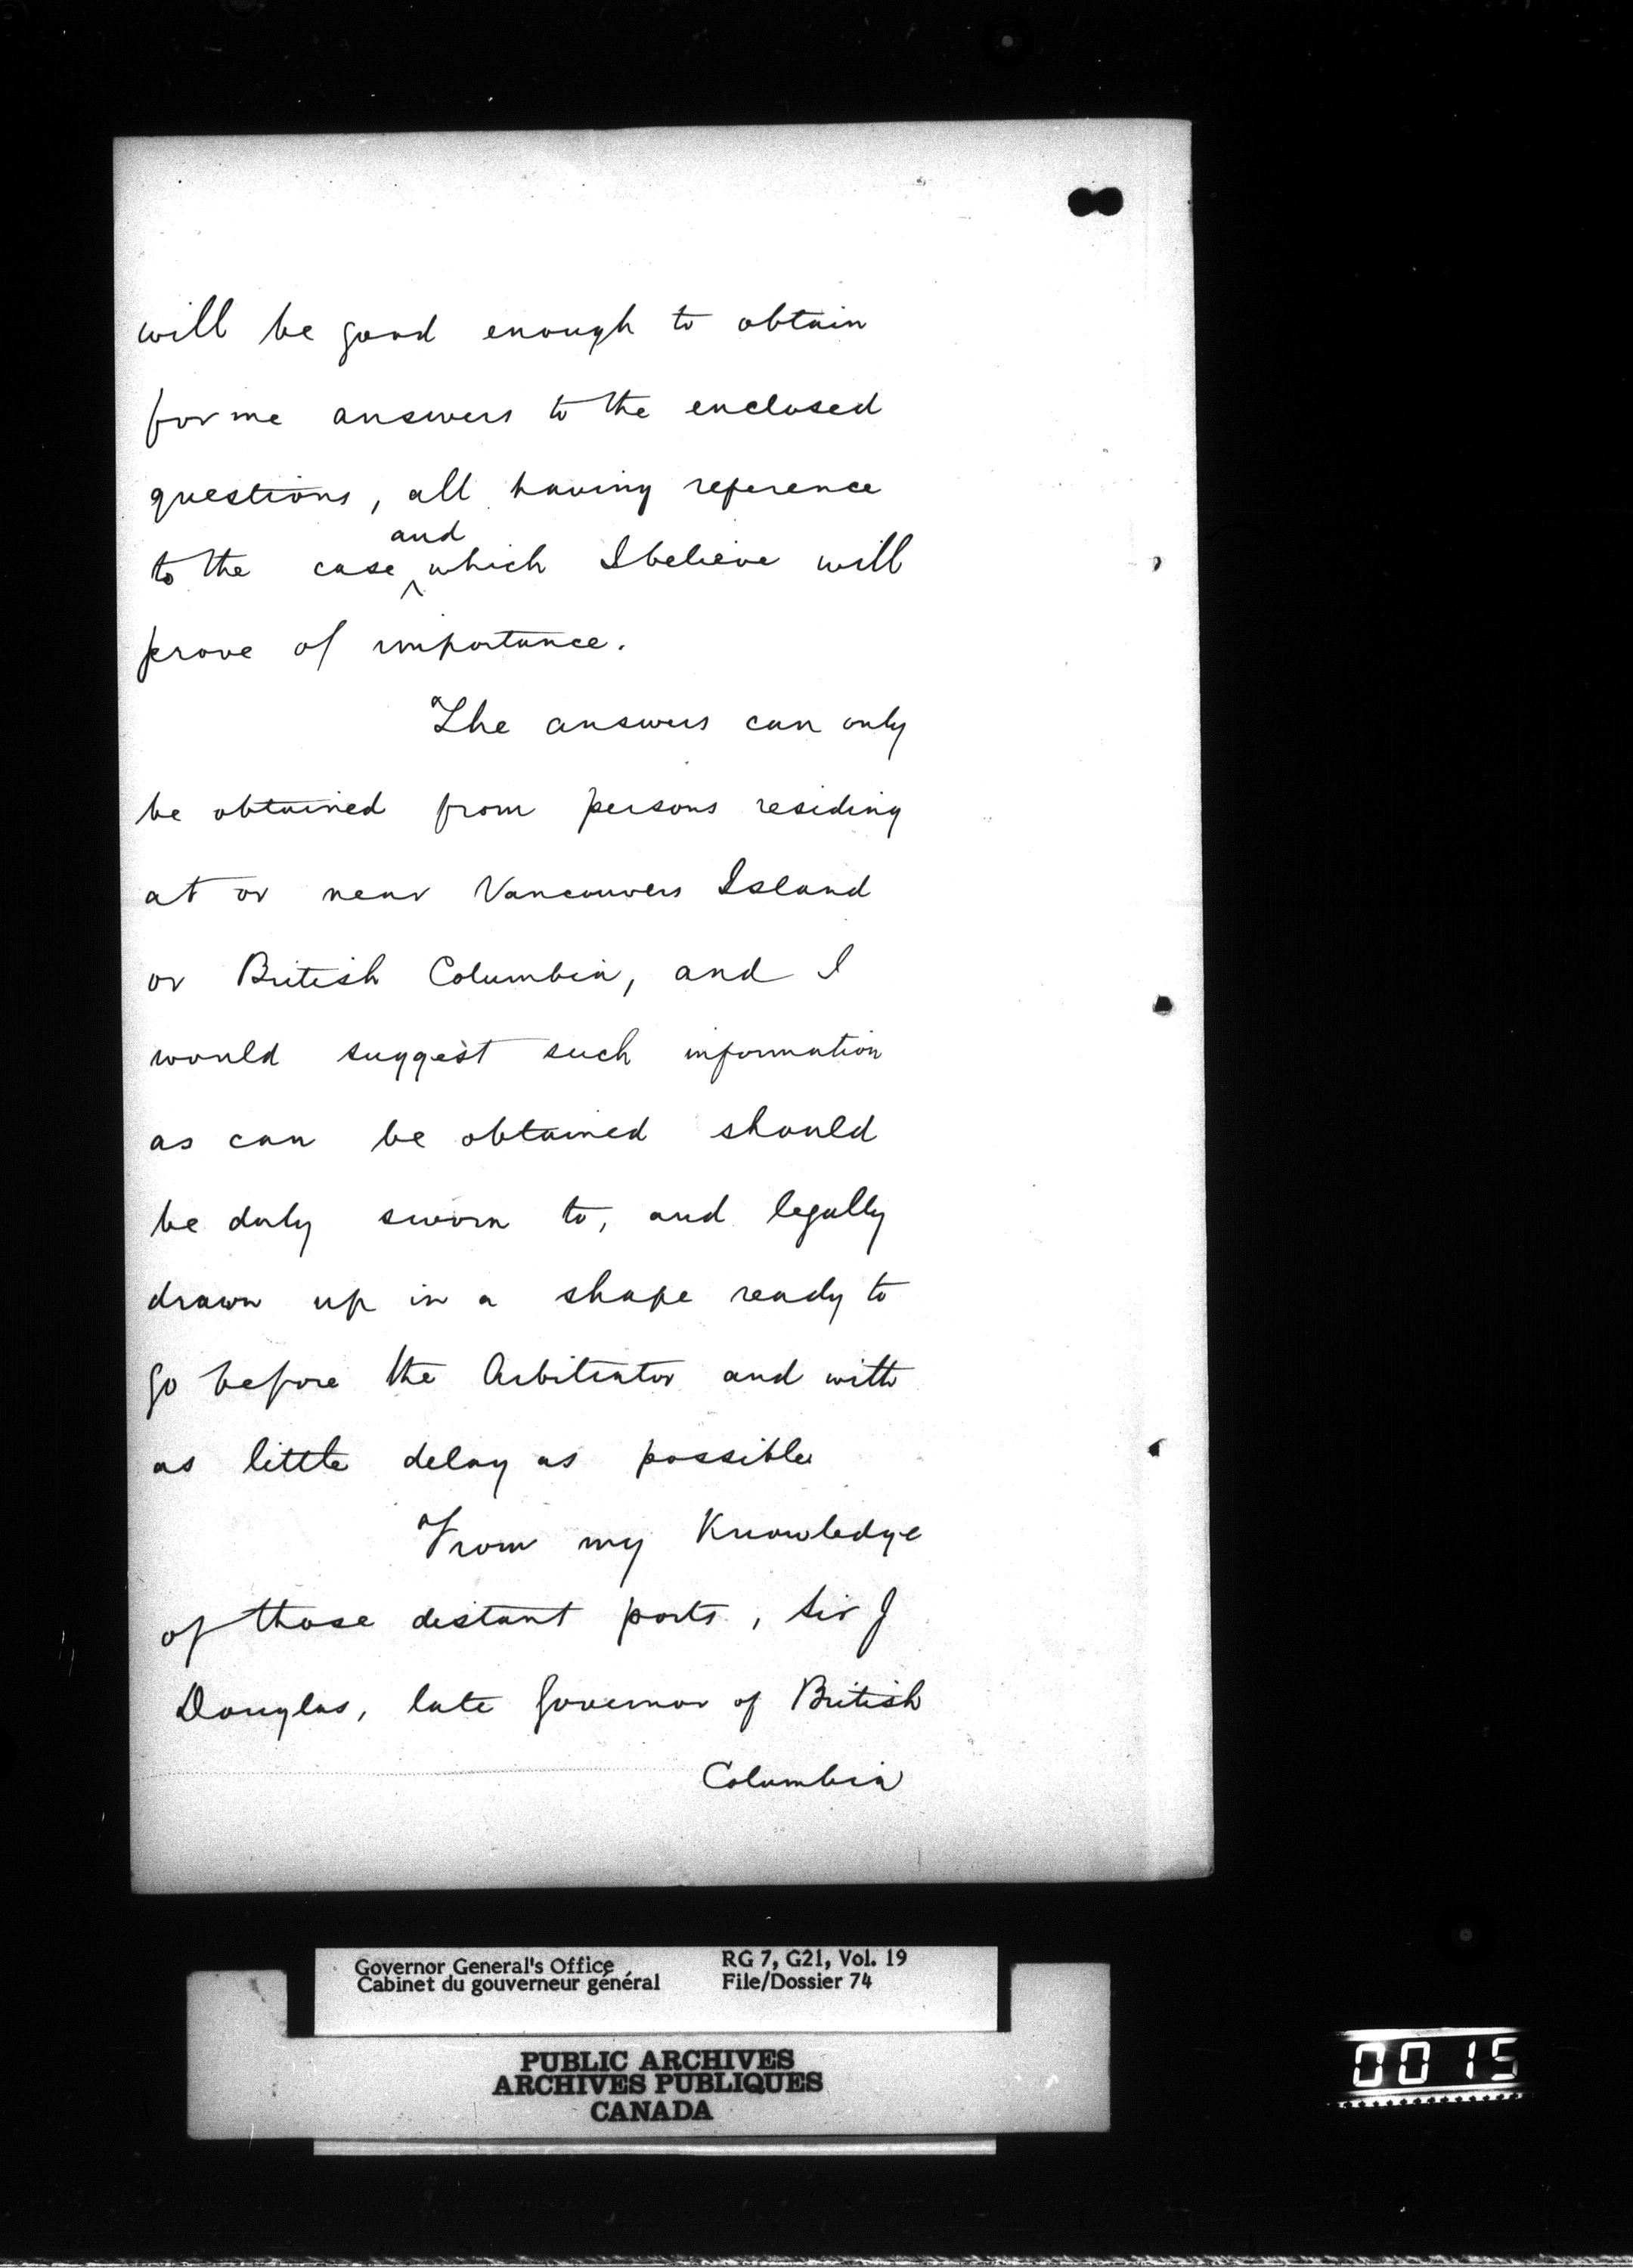 will be good enough to obtain
for me answers to the enclosed
questions, all having reference
and
to the case which I believe will
prove of importance.
The answers can only
be obtained from persons residing
at or near Vancouvers Island
or British Columbia, and I
would suggest such information
as can be obtained should
be duly sworn to, and legally
drawn up in a shape ready to
go before the Arbitrator and with
as little delay as possible
From my Knowledge
of those distant parts, Sir J
Douglas, late Governor of British
Columbia
Governor General's Office RG 7, G21, Vol. 19
Cabinet du gouverneur général File/Dossier 74
PUBLIC ARCHIVES
ARCHIVES PUBLIQUES
CANADA
0015